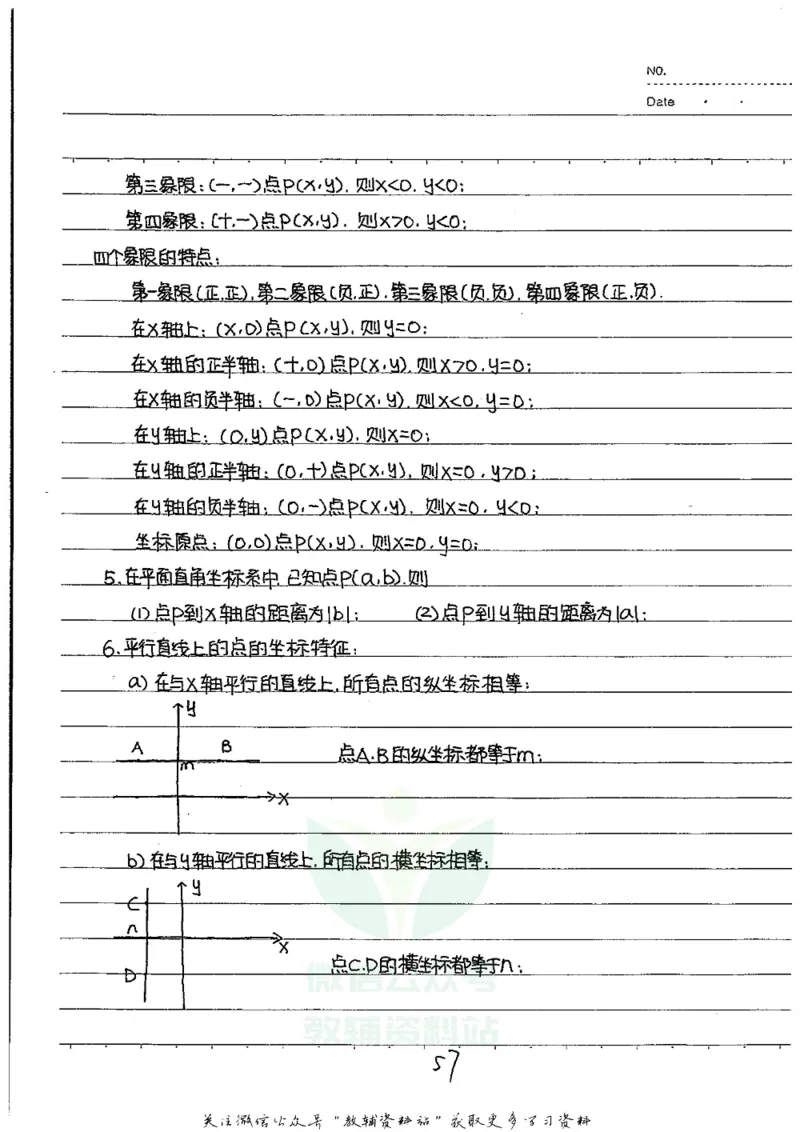 NO.
Date . .
第三象限：(-,-)点P(x,y)，则x<0，y<0；
第四象限：(+,-)点P(x,y)，则x>0，y<0；
四个象限的特点：
第一象限(正,正)，第二象限(负,正)，第三象限(负,负)，第四象限(正,负)．
在x轴上：(x,0)点P(x,y)，则y=0；
在x轴的正半轴：(+,0)点P(x,y)，则x>0，y=0；
在x轴的负半轴：(-,0)点P(x,y)，则x<0，y=0；
在y轴上：(0,y)点P(x,y)，则x=0；
在y轴的正半轴：(0,+)点P(x,y)，则x=0，y>0；
在y轴的负半轴：(0,-)点P(x,y)，则x=0，y<0；
坐标原点：(0,0)点P(x,y)，则x=0，y=0；
5.在平面直角坐标系中，已知点P(a,b)，则
(1)点P到x轴的距离为|b|； (2)点P到y轴的距离为|a|；
6.平行直线上的点的坐标特征：
a)在与x轴平行的直线上，所有点的纵坐标相等；
y
A B
点A.B的纵坐标都等于m；
m
x
b)在与y轴平行的直线上，所有点的横坐标相等；
y
C
n
x
点C.D的横坐标都等于n；
D
微信公众号
教辅资料站
57
关注微信公众号“教辅资料站”获取更多学习资料